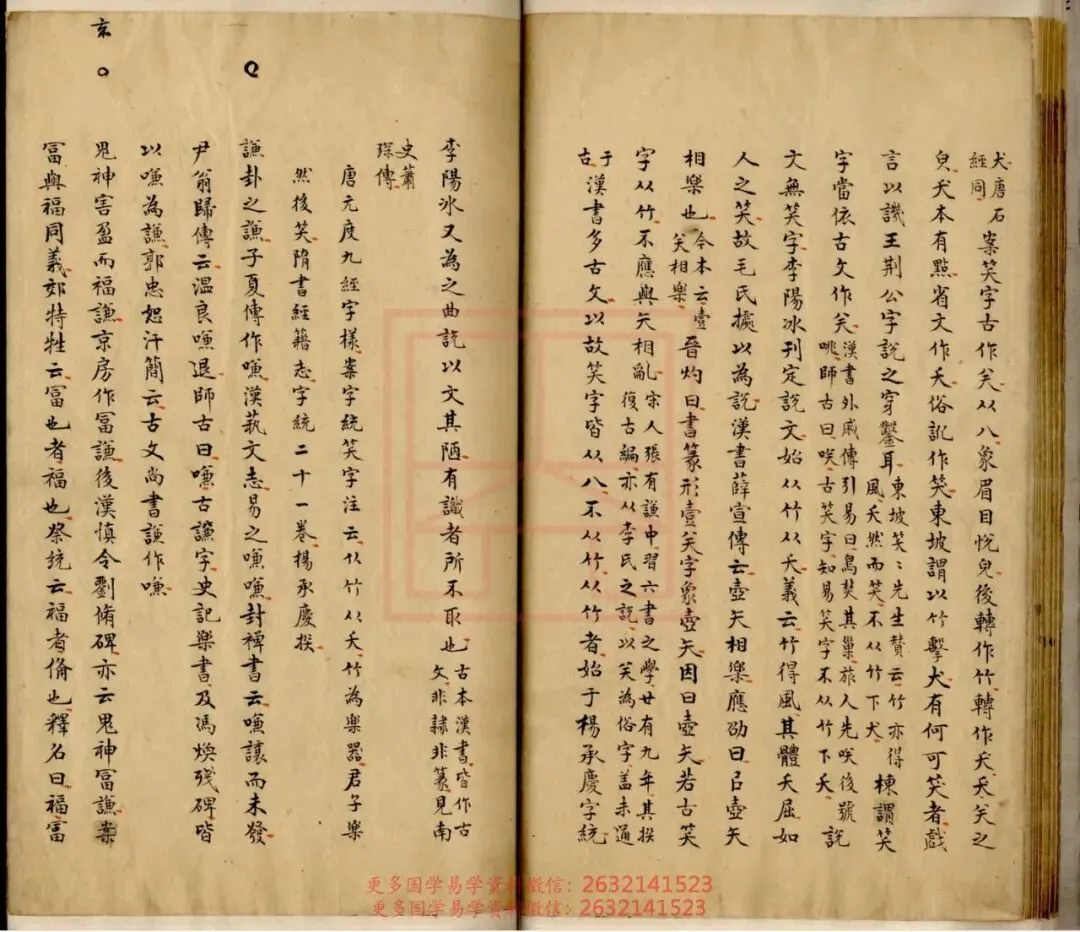 犬唐石
經同
案笑字古作𠇾从八象眉目悅皃後轉作竹轉作夭夭𠇾之
皃夭本有㸃省文作夭俗訛作笑東坡謂以竹擊犬有何可笑者戲
言以譏王荆公字說之穿鑿耳
東坡笑笑先生贊云竹亦得
風夭然而笑不从竹下犬
棟謂笑
字當依古文作𠇾
漢書外戚傳引易曰鳥焚其巢旅人先咲後號
咷師古曰咲古笑字知易笑字不从竹下夭
說
文無笑字李陽冰刊定說文始从竹从夭義云竹得風其體夭屈如
人之笑故毛氏據以為說漢書薛宣傳云壺矢相樂應劭曰㠯壺矢
相樂也
今本云壹
𠇾相樂
晉灼曰書篆形壹𠇾字象壺矢因曰壺矢若古笑
字从竹不應與矢相亂
宋人張有謙中習六書之學廿有九年其撰
復古編亦从李氏之說以𠇾為俗字盖未通
于
古
漢書多古文以故笑字皆从八不从竹从竹者始于楊承慶字統
李陽冰又為之曲說以文其陋有識者所不取也
古本漢書皆作古
文非隷非篆見南
史蕭
琛傳
唐元度九經字樣案字統笑字注云从竹从夭竹為樂器君子樂
然後笑隋書經籍志字統二十一卷楊承慶撰
謙卦之謙子夏傳作嗛漢藝文志易之嗛嗛封禪書云嗛讓而未發
尹翁歸傳云温良嗛退師古曰嗛古謙字史記樂書及馮煥殘碑皆
以嗛為謙郭忠恕汗簡云古文尚書謙作嗛
京
鬼神害盈而福謙京房作冨謙後漢慎令劉脩碑亦云鬼神冨謙案
冨與福同義郊特牲云冨也者福也祭統云福者俻也釋名曰福冨
更多国学易学资料微信：2632141523
更多国学易学资料微信：2632141523